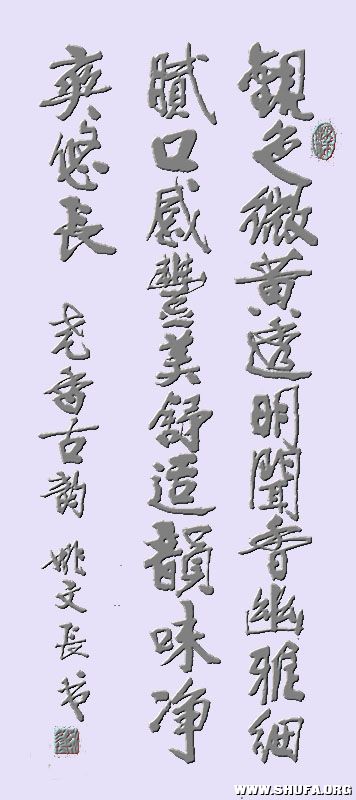 觀色微黄透明聞香幽雅細
膩口感豐美舒适韻味净
爽悠長 尧香古韵 姚文長书
WWW.SHUFA.ORG